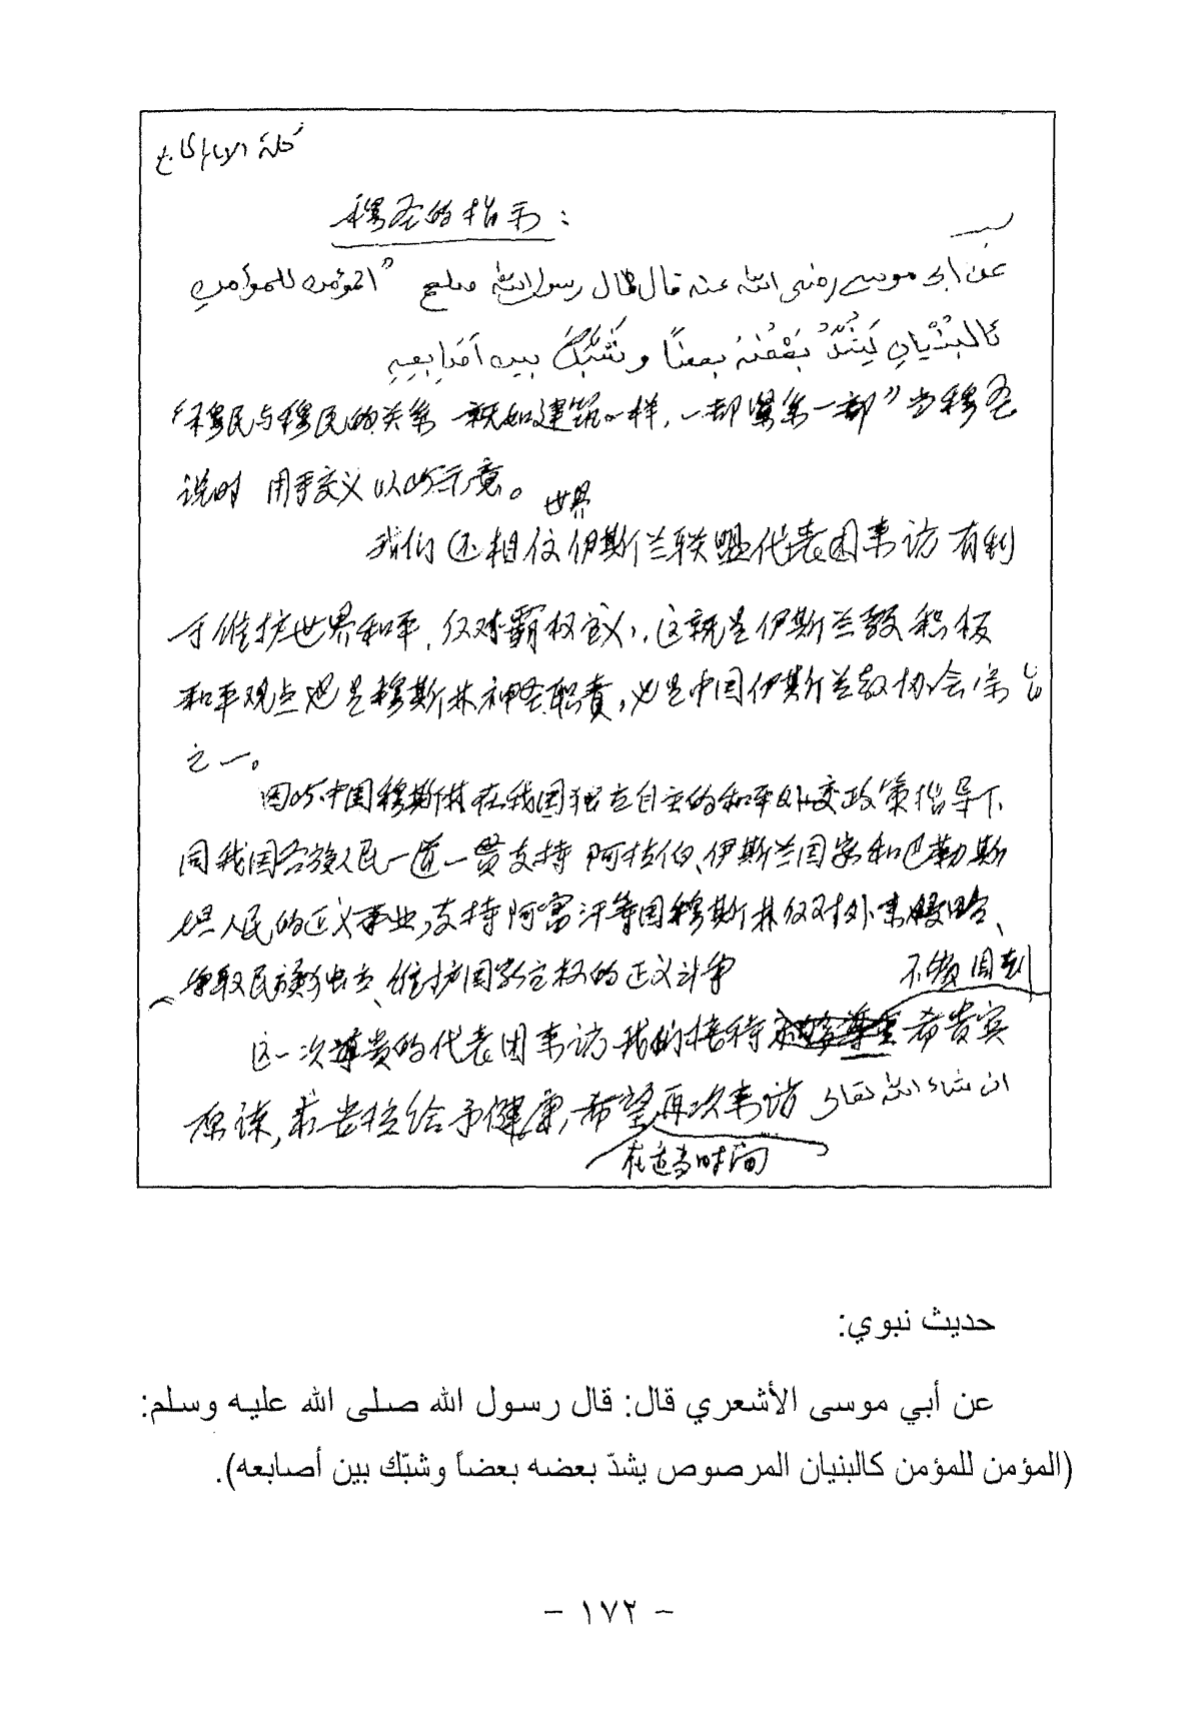 كلمة الامام
穆圣的指示：
عن ابى موسى رضى الله عنه قال قال رسول الله صلعم "المؤمن للمؤمن
كالبُنْيانِ يَشُدُّ بَعْضُهُ بعضًا وشَبَّكَ بين أصَابِعِهِ
"穆民与穆民的关系 就如建筑一样，一部紧系一部"当穆圣
说时 用手交叉以此示意。
世界
我们还相信伊斯兰联盟代表团来访有利
于维护世界和平，反对霸权主义，这就是伊斯兰教积极
和平观点也是穆斯林神圣职责，也是中国伊斯兰教协会宗旨
之一。
因此中国穆斯林在我国独立自主的和平外交政策指导下
同我国各族人民一道一贯支持阿拉伯、伊斯兰国家和巴勒斯
坦人民的正义事业，支持阿富汗等国穆斯林反对外来侵略、
争取民族独立、维护国家主权的正义斗争
不够周到
这一次尊贵的代表团来访我们接待 希贵宾
原谅，求安拉给予健康，希望再次来访 ان شاء الله تعالى
在适当时间
حديث نبوي:
عن أبي موسى الأشعري قال: قال رسول الله صلى الله عليه وسلم:
(المؤمن للمؤمن كالبنيان المرصوص يشدّ بعضه بعضاً وشبّك بين أصابعه).
- ١٧٢ -